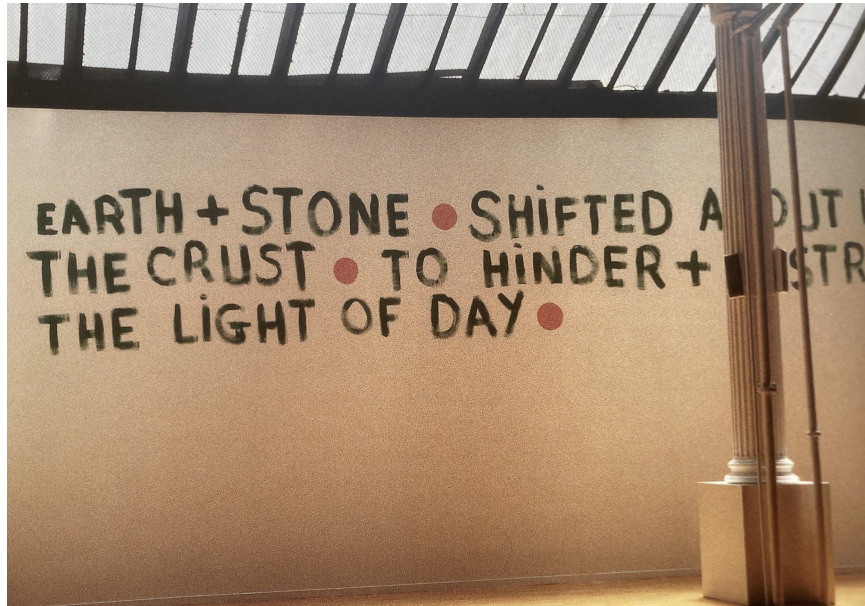 EARTH + STONE • SHiFTED
THE CRUST • TO HiNDER +
THE LiGHT OF DAY •